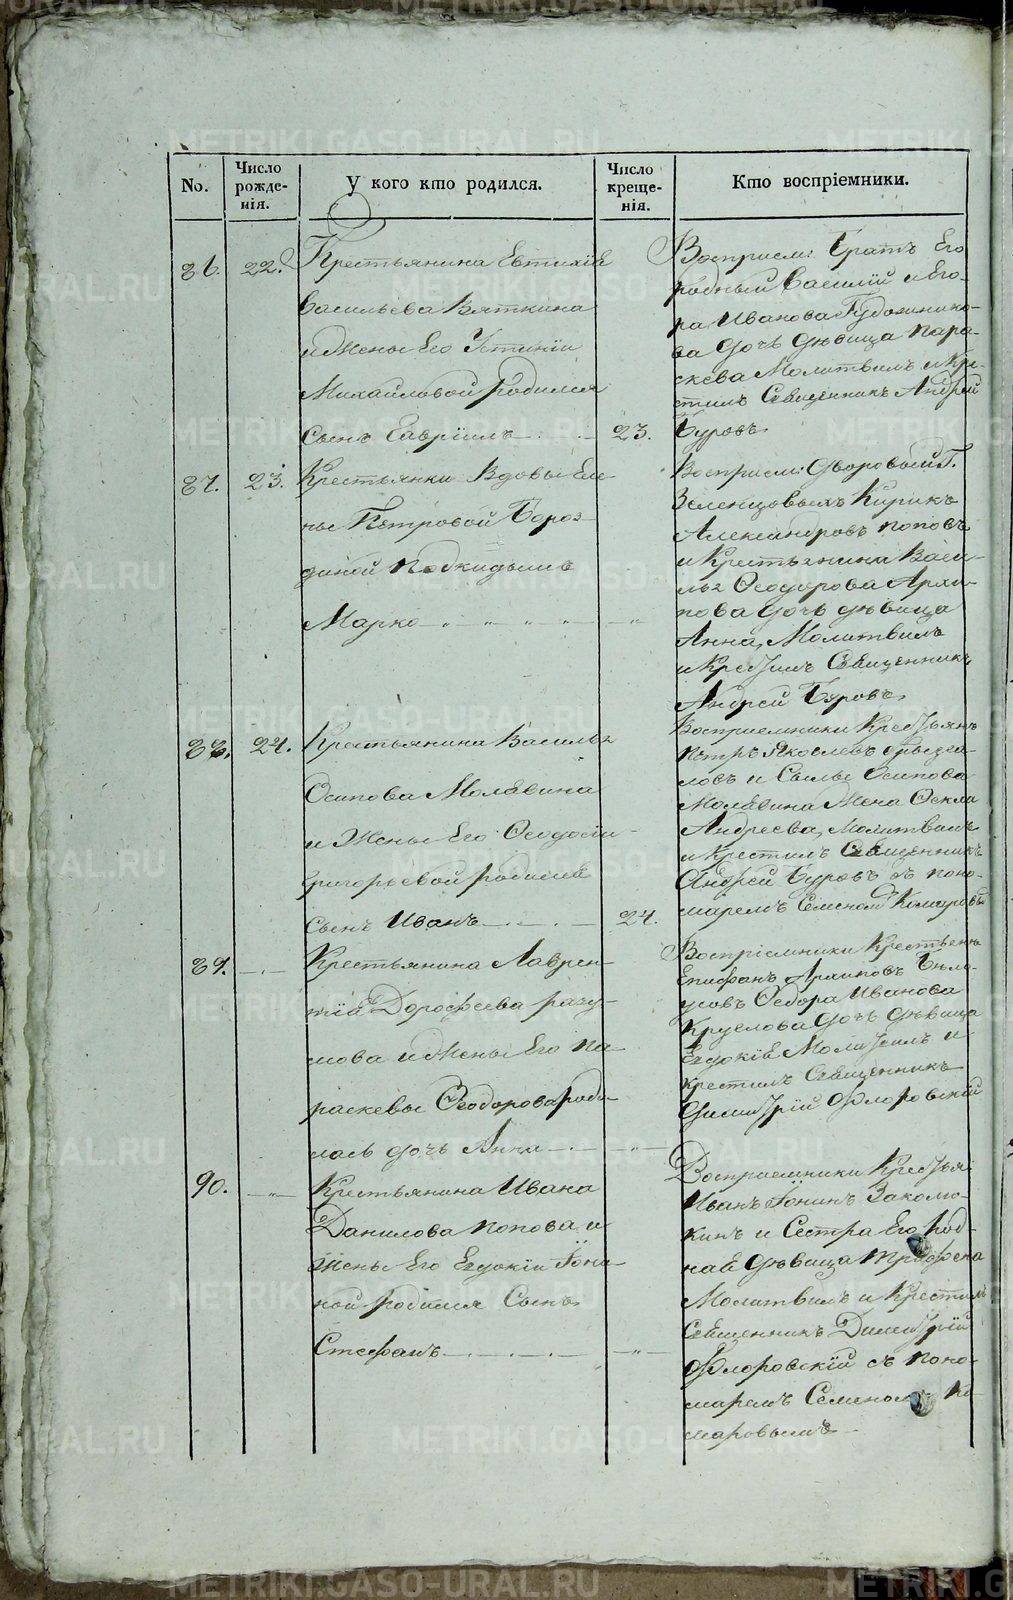 No.
Число рожде-нія.
У кого кто родился.
Число креще-нія.
Кто воспріемники.
86.
22.
Крестьянина Евтихіѣ
Васильева Вяткина
и Жены Его Устиніи
Михайловой родился
Сынъ Гавріилъ
23.
Восприем: Братъ Его
родный Василій и Его-
ра Иванова
ва дочь дѣвица Пара-
скева Молитвилъ и Кре-
стилъ Священникъ Андрей
Буровъ
87.
23.
Крестьянки Вдовы Еле
ны Петровой Бороз
диной подкидышъ
Марко
Восприем: дворовый Г.
Зеленцовыхъ Кирикъ
Александровъ Поповъ
и Крестьянина Васи-
лья Феодорова Архи-
пова дочь дѣвица
Анна, Молитвилъ
и Крестилъ Священникъ
Андрей Буровъ
88.
24.
Крестьянина Василья
Осипова Молявина
и Жены Его Феодосіи
Григорьевой родился
Сынъ Иванъ
24.
Восприемники Крестьян
Петръ Яковлевъ
ловъ и Осипова
Молявина Жена Фекла
Андреева, Молитвилъ
и Крестилъ Священникъ
Андрей Буровъ съ поно-
маремъ Семеномъ Комаровы
89.
Крестьянина Лаврен-
тія Дорофеева разу-
мова и Жены Его Па
раскевы Феодоровароди-
лась дочь Анна
Воспріемники Крестьянъ
Епифанъ Архиповъ Бѣло-
усовъ Федора Иванова
Круглова дочь дѣвица
Евдокіѣ Молитвилъ и
крестилъ Священникъ
Димитрій Флоровскій
90.
Крестьянина Ивана
Данилова Попова и
Жены Его Евдокіи Іони-
ной родился Сынъ
Стефанъ
Восприемники Крестья
Иванъ Іонинъ Заколю-
кинъ и Сестра Его род-
наѣ дѣвица Трифена
Молитвилъ и Крестилъ
Священникъ Димитрій
Флоровскій съ поно-
маремъ Семеномъ Ко-
маровымъ
METRIKI.GASO-URAL.RU